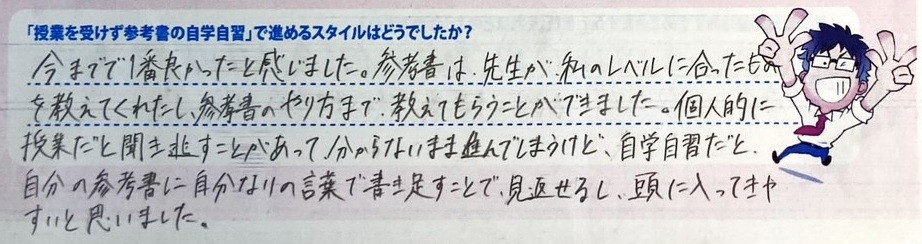 「授業を受けず参考書の自学自習」で進めるスタイルはどうでしたか？
今までで1番良かったと感じました。参考書は、先生が、私のレベルに合ったもの
を教えてくれたし、参考書のやり方まで、教えてもらうことができました。個人的に
授業だと聞き逃すことがあって、分からないまま進んでしまうけど、自学自習だと、
自分の参考書に自分なりの言葉で書き足すことで、見返せるし、頭に入ってきや
すいと思いました。